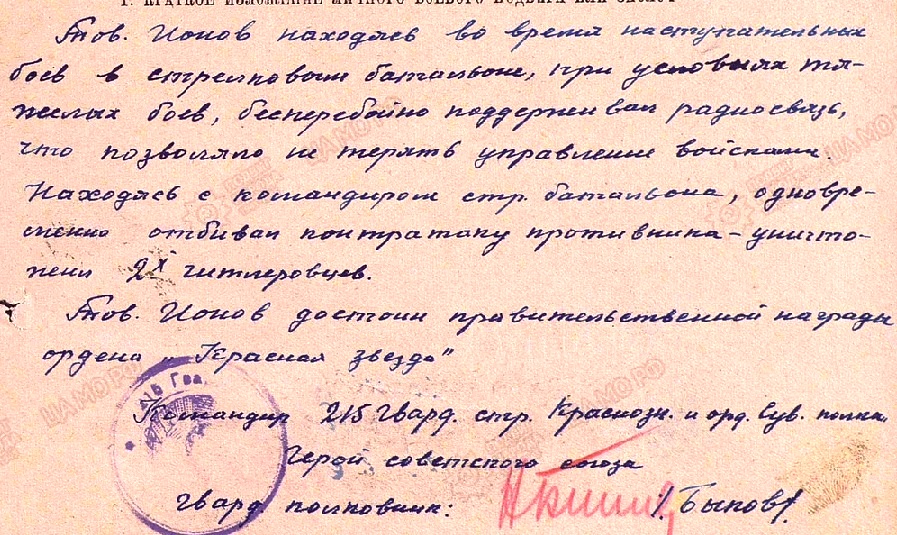 1. КРАТКОЕ ИЗЛОЖЕНИЕ ЛИЧНОГО БОЕВОГО ПОДВИГА ИЛИ ЗАСЛУГ
Тов. Ионов находясь во время наступательных
боев в стрелковом батальоне, при условиях тя-
желых боев, бесперебойно поддерживал радиосвязь,
что позволяло не терять управление войсками.
Находясь с командиром стр. батальона, одновре-
менно отбивал контратаку противника - уничто-
жил 2х гитлеровцев.
Тов. Ионов достоин правительственной награды
ордена „Красная звезда"
Командир 215 Гвард. стр. Краснозн. и орд. Сув. полка
Герой советского союза
Гвард. полковник: /. Быков/
ЦАМО РФ
ЦАМО РФ
ЦАМО РФ
ЦАМО РФ